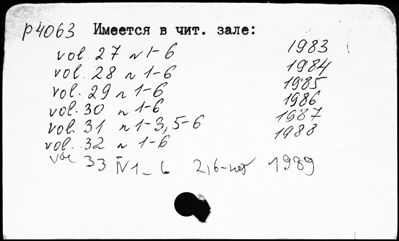 р4063 Имеется в чит. зале:
vol. 27 n 1-6 1983
vol. 28 n 1-6 1984
vol. 29 n 1-6 1985
vol. 30 n 1-6 1986
vol. 31 n 1-3, 5-6 1987
vol. 32 n 1-6 1988
vol 33 N 1-6 2,6-нет 1989